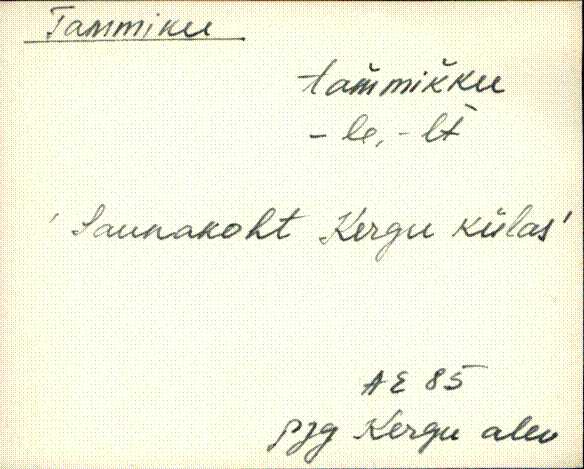 Tammiku
tam̆mik̆ku
- le, - lt̀
' Saunakoht Kergu külas'
AE 85
pjg Kergu alev